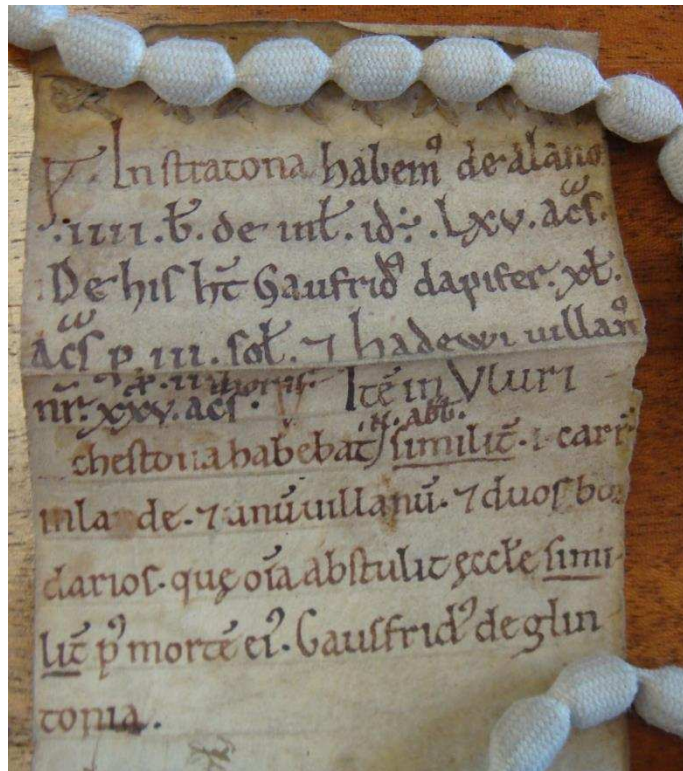 In stratona habemꝰ de alano
.iiii. ƀ. de inł. id÷ .lxv. ac̃s.
De his hт̃ Gaufridꝰ dapifer. xł.
ac̃s p iii. soł. ⁊ hadewi uillanꝰ
nr̃. xxv. ac̃s. Itē in Vluri
chestona habebat H. abb. similit̄. i. carr̃
inla de. ⁊ unū uillanū. ⁊ duos bor
darios. quę oīa abstulit ęccłe simi
lit̄ pꝰ mortē eiꝰ. Gausfridꝰ de glin
tonia.